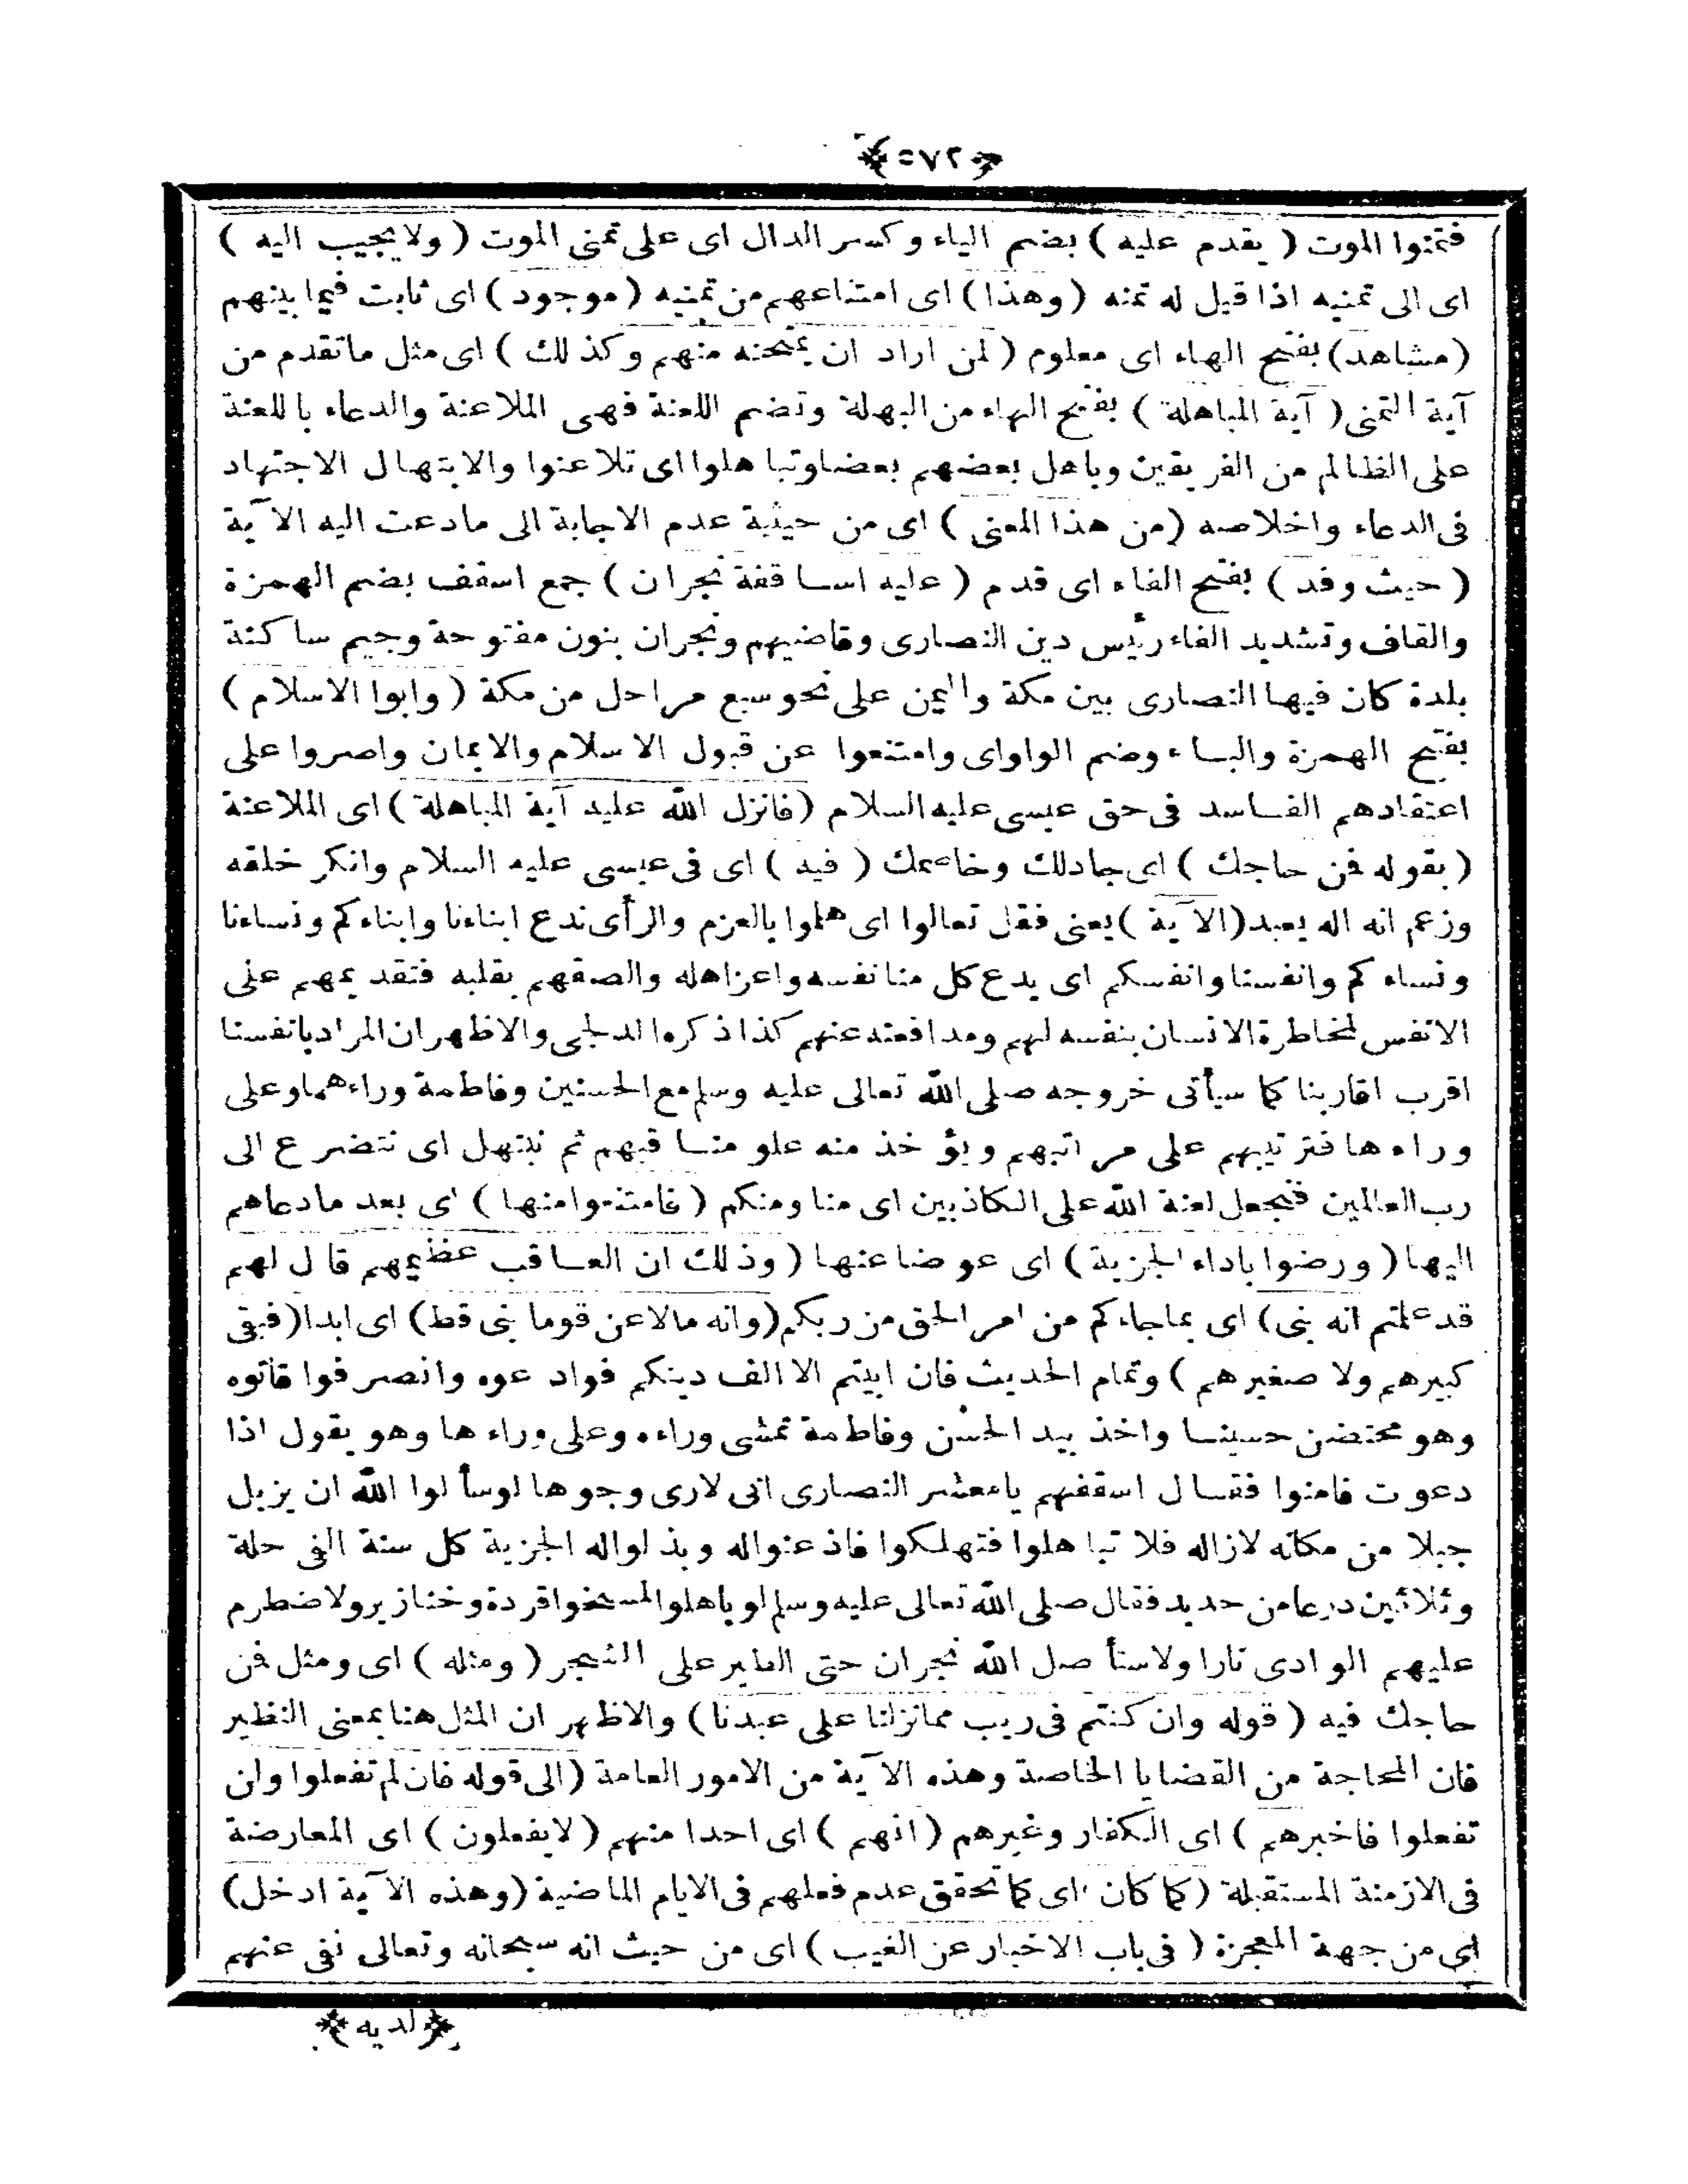 ﴿٥٧٢﴾
فتمنوا الموت ( يقدم عليه ) بضم الياء وكسر الدال اى على تمنى الموت ( ولا يجيب اليه )
اى الى تمنيه اذا قيل له تمنه ( وهذا ) اى امتناعهم من تمنيه ( موجود ) اى ثابت فيما بينهم
( مشاهد ) بفتح الهاء اى معلوم ( لمن اراد ان يمتحنه منهم وكذلك ) اى مثل ما تقدم من
آية التمنى ( آية المباهلة ) بفتح الهاء من البهلة وتضم اللعنة فهى الملاعنة والدعاء باللعنة
على الظالم من الفريقين وباهل بعضهم بعضا وتباهلوا اى تلاعنوا والابتهال الاجتهاد
فى الدعاء واخلاصه ( من هذا المعنى ) اى من حيثية عدم الاجابة الى ما دعت اليه الآية
( حيث وفد ) بفتح الفاء اى قدم ( عليه اساقفة نجران ) جمع اسقف بضم الهمزة
والقاف وتشديد الفاء رئيس دين النصارى وقاضيهم ونجران بنون مفتوحة وجيم ساكنة
بلدة كان فيها النصارى بين مكة واليمن على نحو سبع مراحل من مكة ( وابوا الاسلام )
بفتح الهمزة والباء وضم الواو اى وامتنعوا عن قبول الاسلام والايمان واصروا على
اعتقادهم الفاسد فى حق عيسى عليه السلام ( فانزل الله عليه آية المباهلة ) اى الملاعنة
( بقوله فمن حاجك ) اى جادلك وخاصمك ( فيه ) اى فى عيسى عليه السلام وانكر خلقه
وزعم انه اله يعبد ( الآية ) يعنى فقل تعالوا اى هلموا بالعزم والرأى ندع ابناءنا وابناءكم ونساءنا
ونساءكم وانفسنا وانفسكم اى يدع كل منا نفسه واعز اهله والصقهم بقلبه فتقديمهم على
الانفس لمخاطرة الانسان بنفسه لهم ومدافعته عنهم كذا ذكره الدلجى والاظهر ان المراد بانفسنا
اقرب اقاربنا كما سيأتى خروجه صلى الله تعالى عليه وسلم مع الحسنين وفاطمة وراءهما وعلى
وراءها فترتيبهم على مراتبهم ويؤخذ منه علو مناقبهم ثم نبتهل اى نتضرع الى
رب العالمين فنجعل لعنة الله على الكاذبين اى منا ومنكم ( فامتنعوا منها ) اى بعد ما دعاهم
اليها ( ورضوا باداء الجزية ) اى عوضا عنها ( وذلك ان العاقب عظيمهم قال لهم
قد علمتم انه نبى ) اى بما جاءكم من امر الحق من ربكم ( وانه ما لاعن قوما نبى قط ) اى ابدا ( فبقى
كبيرهم ولا صغيرهم ) وتمام الحديث فان ابيتم الا الف دينكم فوادعوه وانصرفوا فأتوه
وهو محتضن حسينا واخذ بيد الحسن وفاطمة تمشى وراءه وعلى وراءها وهو يقول اذا
دعوت فامنوا فقال اسقفهم يا معشر النصارى انى لارى وجوها لو سألوا الله ان يزيل
جبلا من مكانه لازاله فلا تباهلوا فتهلكوا فاذعنوا له وبذلوا له الجزية كل سنة الفى حلة
وثلاثين درعا من حديد فقال صلى الله تعالى عليه وسلم لو باهلوا لمسخوا قردة وخنازير ولاضطرم
عليهم الوادى نارا ولاستأصل الله نجران حتى الطير على الشجر ( ومثله ) اى ومثل فمن
حاجك فيه ( قوله وان كنتم فى ريب مما نزلنا على عبدنا ) والاظهر ان المثل هنا بمعنى النظير
فان المحاجة من القضايا الخاصة وهذه الآية من الامور العامة ( الى قوله فان لم تفعلوا ولن
تفعلوا فاخبرهم ) اى الكفار وغيرهم ( انهم ) اى احدا منهم ( لا يفعلون ) اى المعارضة
فى الازمنة المستقبلة ( كما كان ) اى كما تحقق عدم فعلهم فى الايام الماضية ( وهذه الآية ادخل )
اى من جهة المعجزة ( فى باب الاخبار عن الغيب ) اى من حيث انه سبحانه وتعالى نفى عنهم
﴿لديه﴾